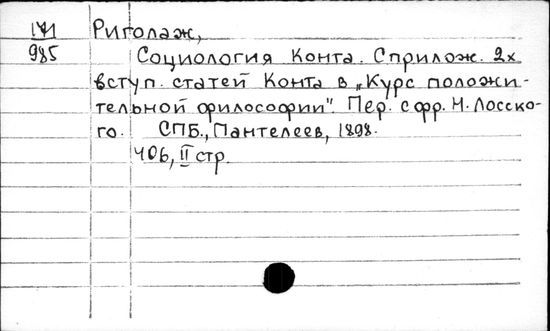 Риголаж,
985
Социология Конта. С прилож. 2х
вступ. статей Конта в „Курс положи-
тельной философии". Пер. с фр. Н. Лосско-
го. СПБ., Пантелеев, 1898.
406, II стр.